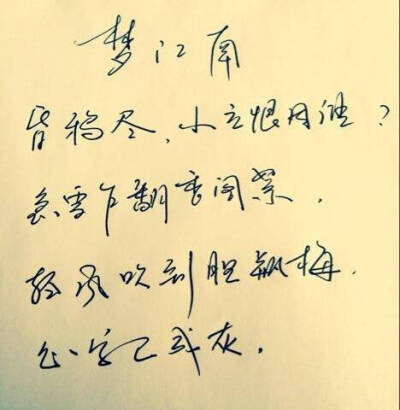 梦江南
昏鸦尽,小立恨因谁?
急雪乍翻香阁絮,
轻风吹到胆瓶梅,
心字已成灰。